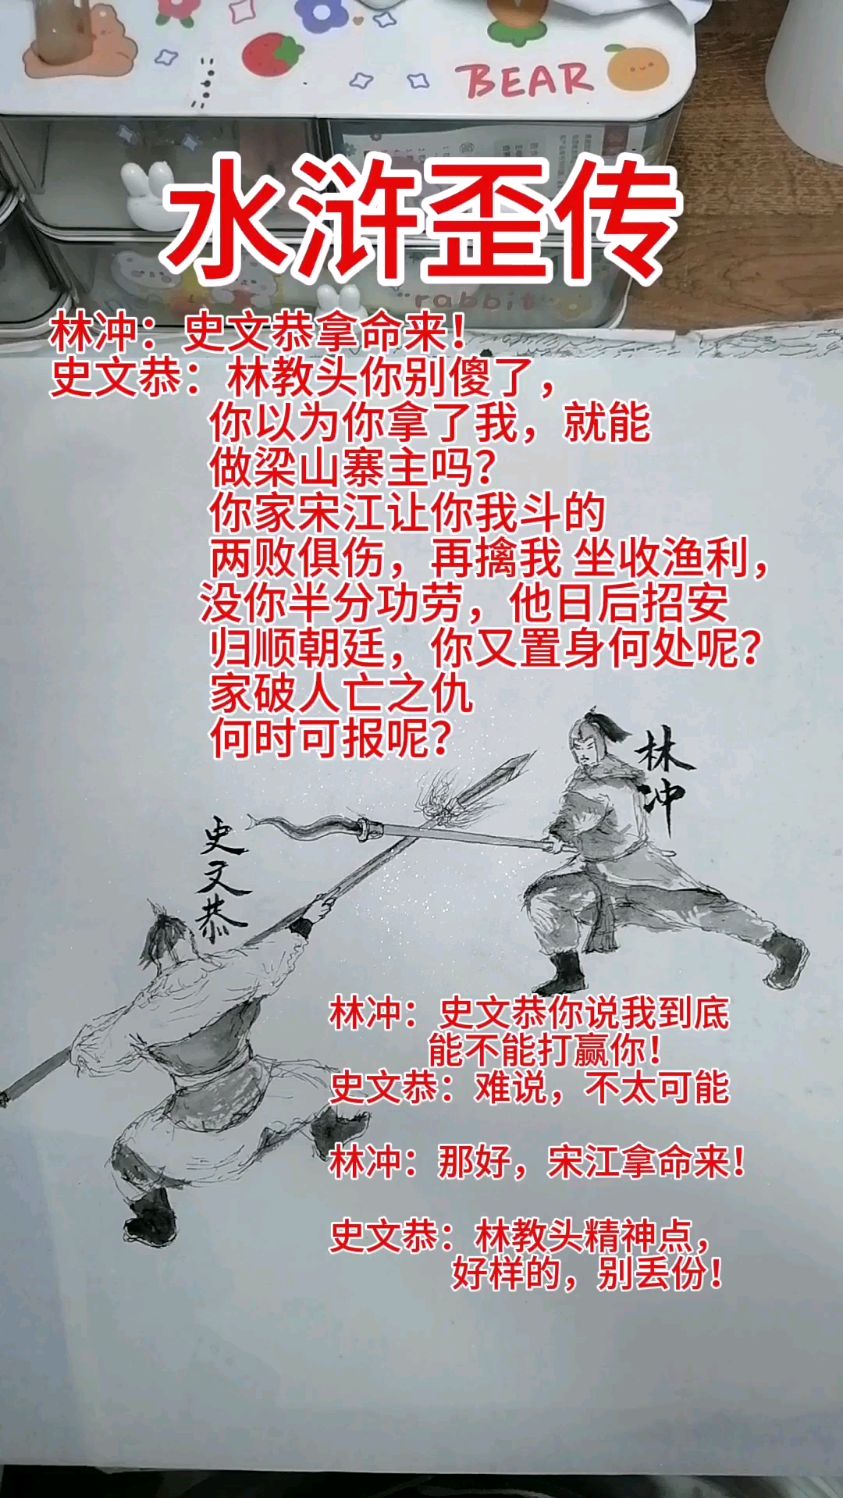 BEAR
水浒歪传
rabbit
林冲：史文恭拿命来！
史文恭：林教头你别傻了，
你以为你拿了我，就能
做梁山寨主吗？
你家宋江让你我斗的
两败俱伤，再擒我 坐收渔利，
没你半分功劳，他日后招安
归顺朝廷，你又置身何处呢？
家破人亡之仇
何时可报呢？
林冲
史文恭
林冲：史文恭你说我到底
能不能打赢你！
史文恭：难说，不太可能
林冲：那好，宋江拿命来！
史文恭：林教头精神点，
好样的，别丢份！